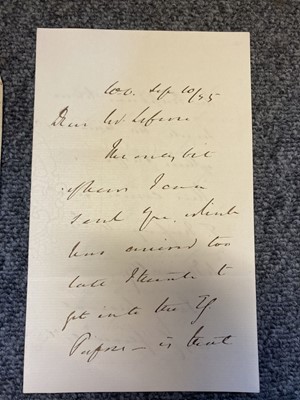 Sep 10/85
Dear Mr Lefevre
The only bit
of news I can
send you, which
has arrived too
late I think to
get into the
Papers — is that